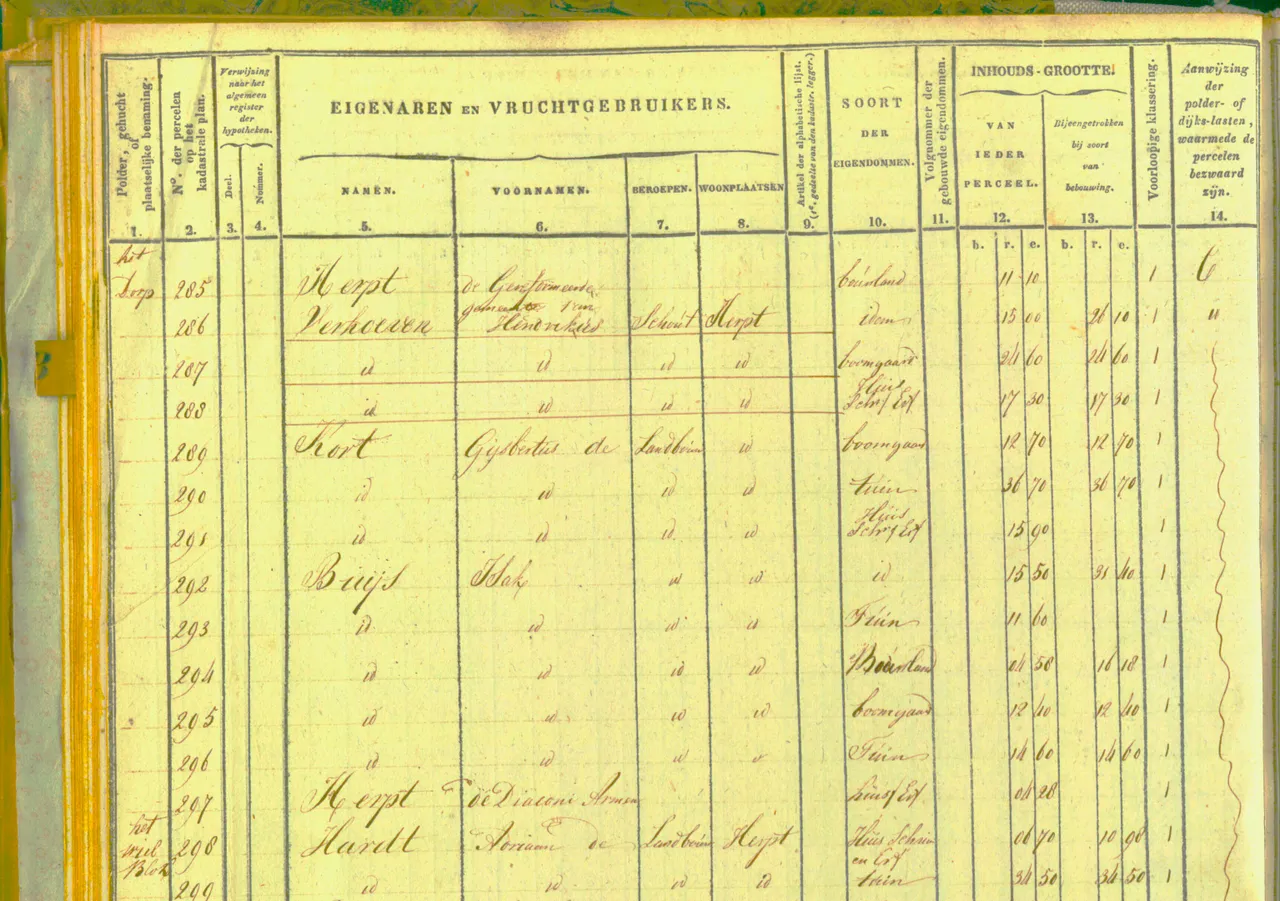 Polder, gehucht of plaatselijke bemming.
N.º der percelen op het kadastrale plan.
Verwijzing naar het algemeen register der hypotheken.
Deel.
Nommer.
EIGENAREN EN VRUCHTGEBRUIKERS.
NAMEN.
VOORNAMEN.
BEROEPEN.
WOONPLAATSEN
Artikel der alphabetische lijst. (1e. gedeelte van den kadastr. legger.)
SOORT DER EIGENDOMMEN.
Volgnommer der gebouwde eigendommen.
INHOUDS-GROOTTE.
VAN IEDER PERCEEL.
Bijeengetrokken bij soort van bebouwing.
Voorloopige klassering.
Aanwijzing der polder- of dijks-lasten, waarmede de percelen bezwaard zijn.
1. 2. 3. 4. 5. 6. 7. 8. 9. 10. 11. 12. 13. 14.
b. r. e. b. r. e.
het
Dorp 285 Herpt de Gereformeerde bouwland 11 10 1
gemeente van
286 Verhoeven Hendrikus Schout Herpt idem 15 00 26 10 1 "
287 id id id id boomgaard 24 60 24 60 1
Huis
288 id id id id Schr Erf 17 30 17 30 1
289 Kort Gijsbertus de Landbouw id boomgaard 12 70 12 70 1
290 id id id id tuin 36 70 36 70 1
Huis
291 id id id id Schr Erf 15 90 1
292 Buijs Isak id id id 15 50 31 40 1
293 id id id id Tuin 11 60 1
294 id id id id Bouwland 04 58 16 18 1
295 id id id id boomgaard 12 40 12 40 1
296 id id id Tuin 14 60 14 60 1
297 Herpt de Diaconi Armen huis Erf 04 28 1
het
wiel 298 Hardt Adriaan de Landbouw Herpt Huis Schuur 06 70 10 98 1
Blok en Erf
299 id id id id tuin 34 50 34 50 1